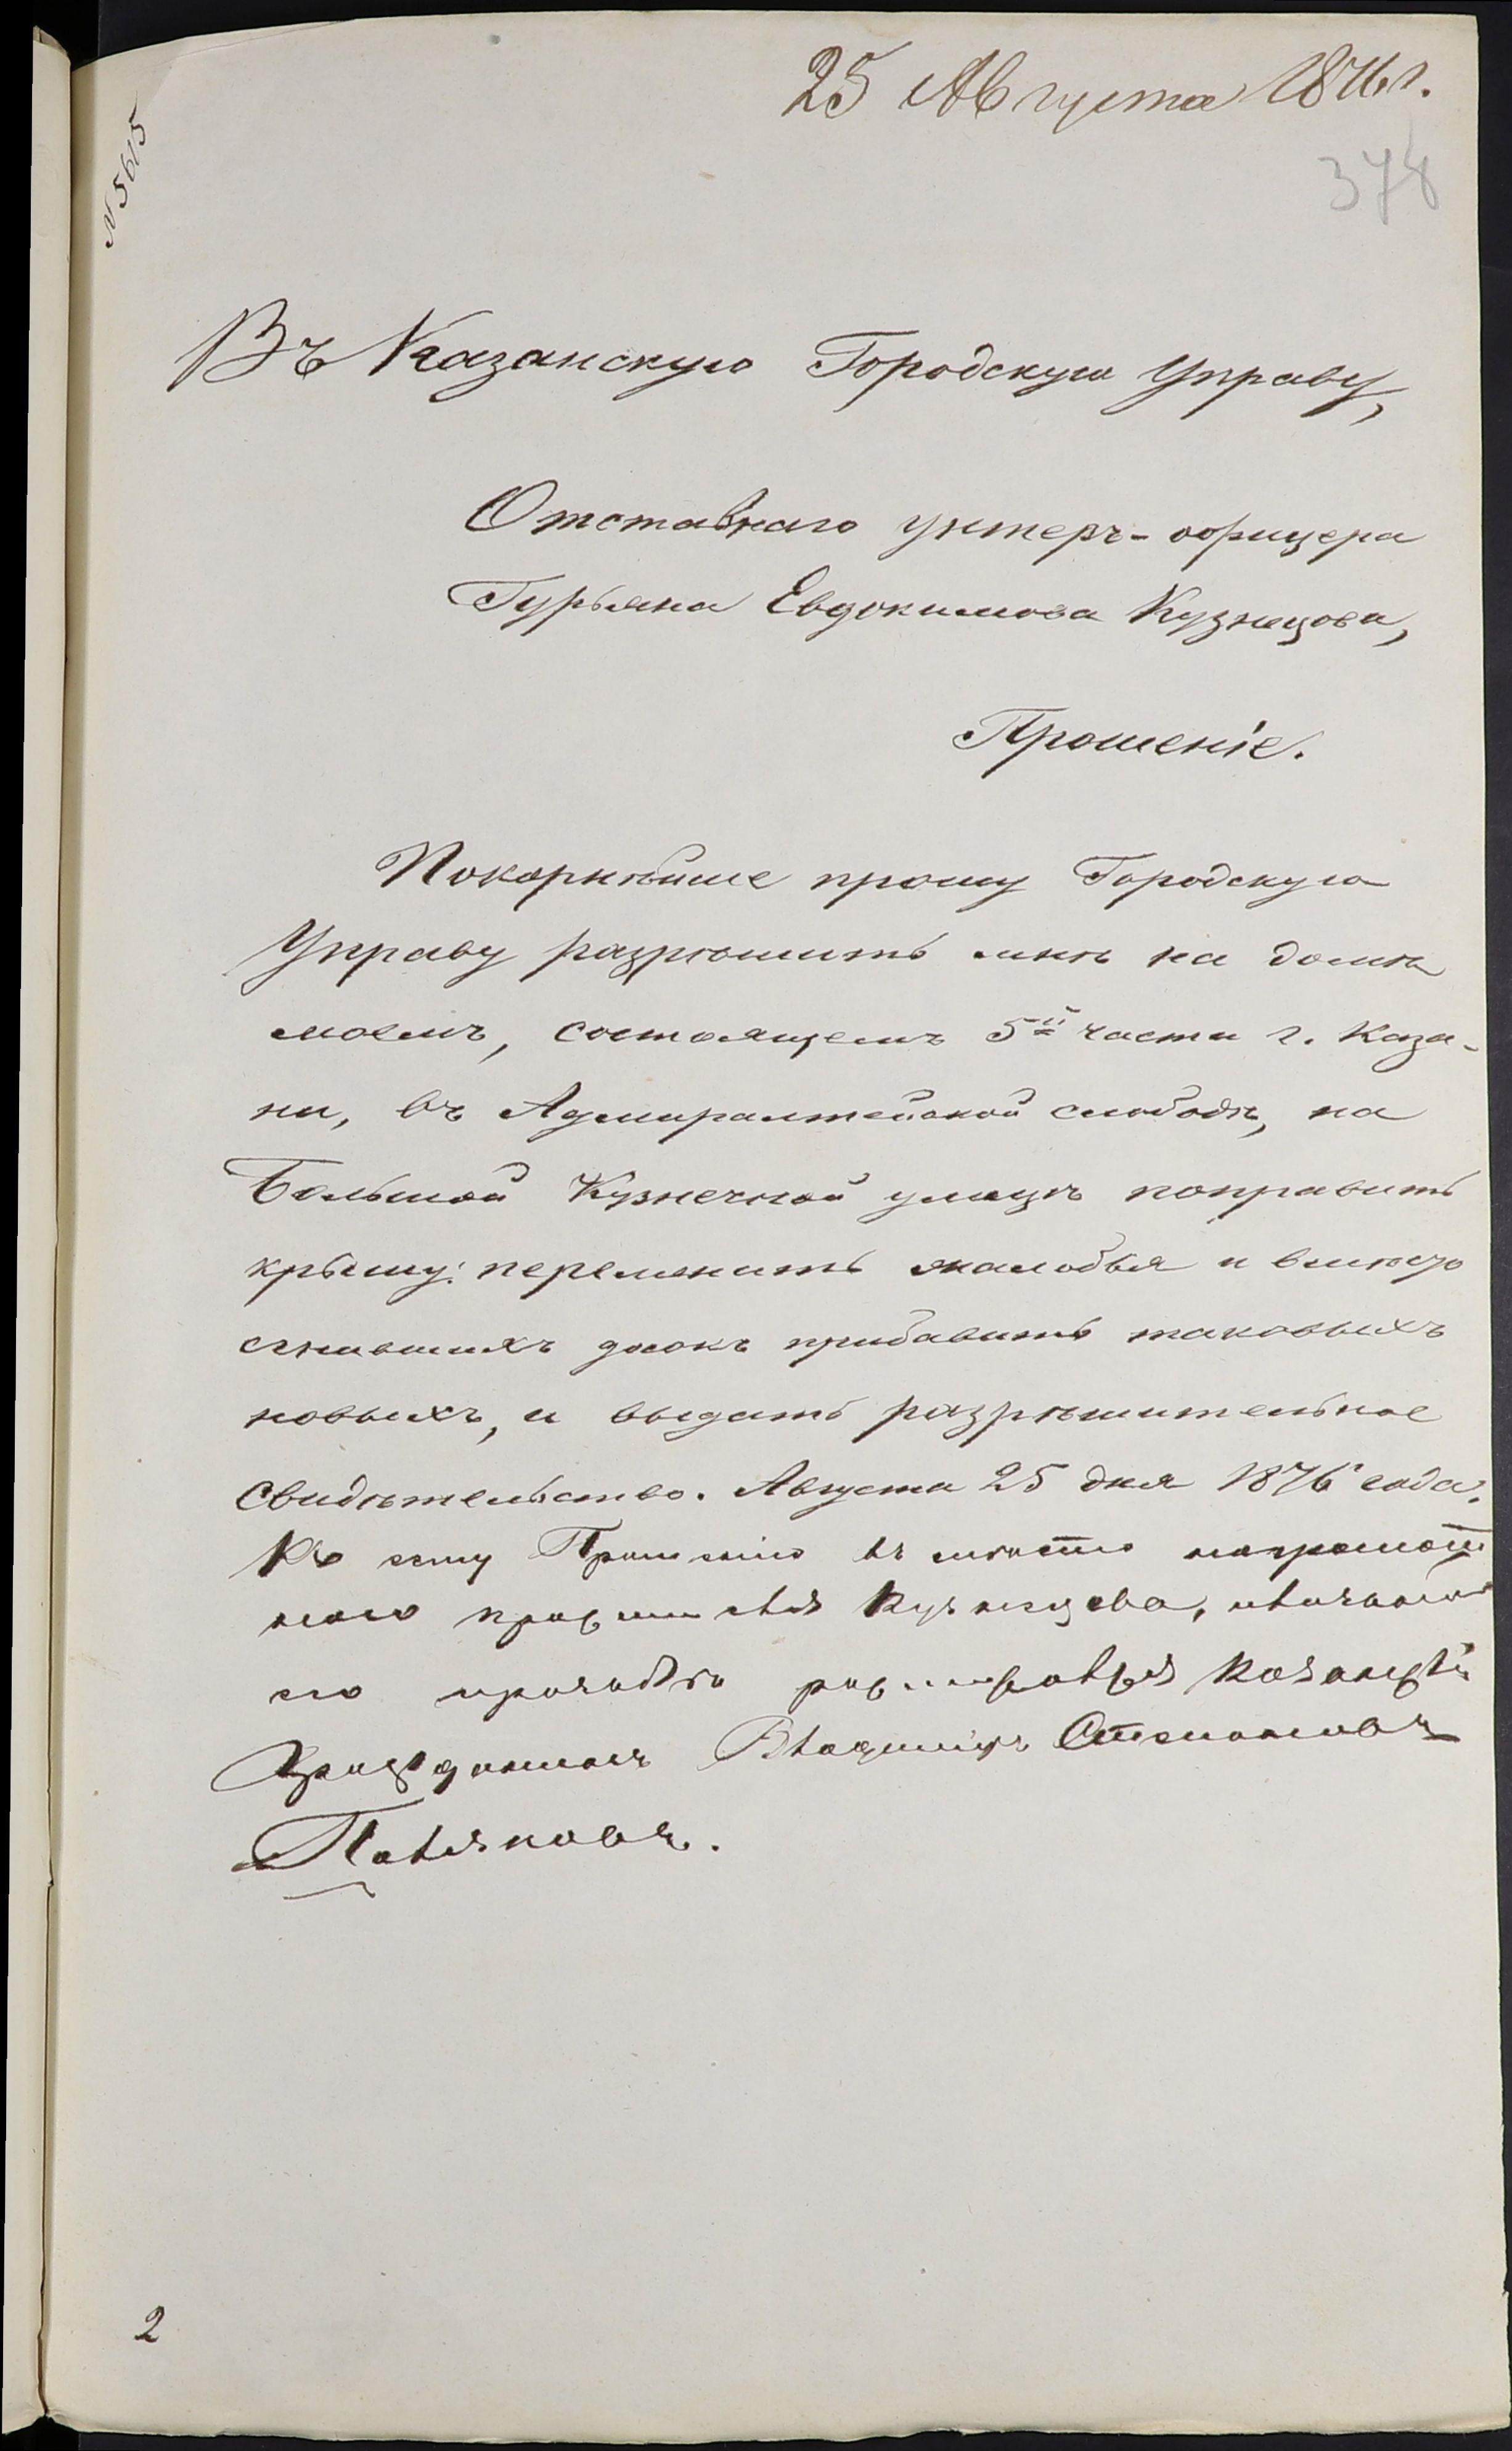 25 Августа 1876 г.
378
N 5615
Въ Казанскую Городскую Управу,
Отставнаго унтеръ-офицера
Гурьяна Евдокимова Кузнецова,
Прошеніе.
Покорнѣйше прошу Городскую
Управу разрѣшить мнѣ на домѣ
моемъ, состоящемъ 5й части г. Каза-
ни, въ Адмиралтейской слободѣ, на
Большой Кузнечной улицѣ поправить
крышу: переменить жалобья и вмѣсто
сгнившихъ досокъ прибавить таковыхъ
новыхъ, и выдать разрѣшительное
свидѣтельство. Августа 25 дня 1876 года.
Къ сему Прошенію въ мѣсто неграмот
наго Кузнецова,
его прозьбѣ Казанскій
Гражданинъ Владиміръ Степановъ
Поляковъ.
2